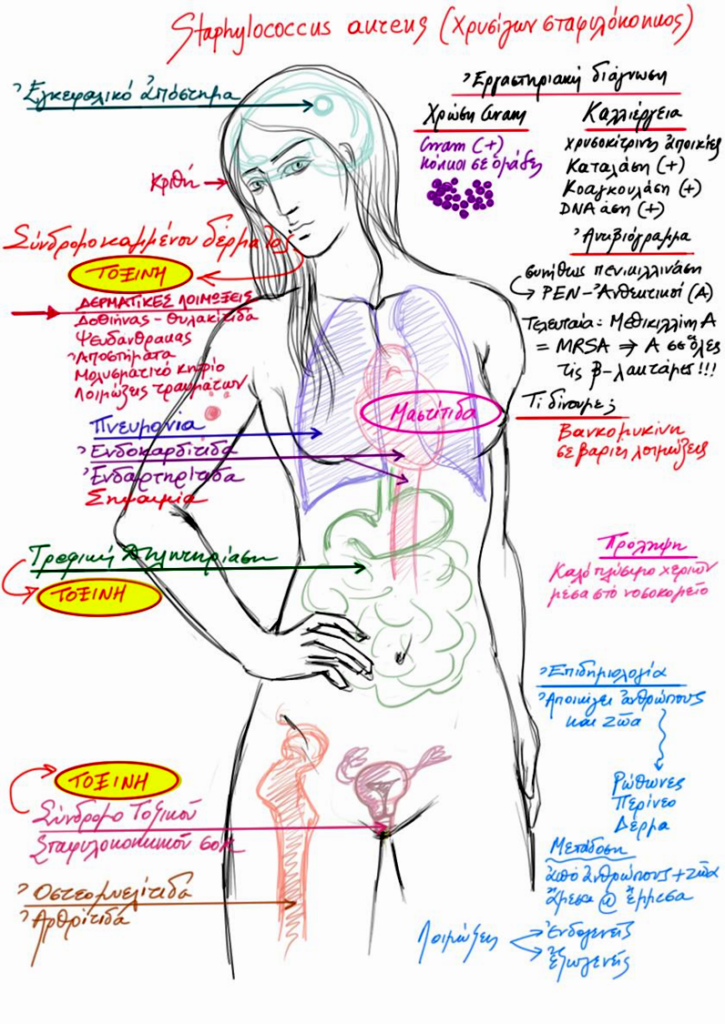 Staphylococcus aureus (χρυσίζων σταφυλόκοκκος)
Ἐγκεφαλικό ἀπόστημα
Κριθή
Σύνδρομο καμμένου δέρματος
ΤΟΞΙΝΗ
ΔΕΡΜΑΤΙΚΕΣ ΛΟΙΜΩΞΕΙΣ
Δοθιήνας - Θυλακίτιδα
Ψευδάνθρακας
Ἀποστήματα
Μολυσματικό κηρίο
Λοιμώξεις τραυμάτων
Πνευμονία
Ἐνδοκαρδίτιδα
Ἐνδαρτηρίτιδα
Σηψαιμία
Μαστίτιδα
Τροφική Δηλητηρίαση
ΤΟΞΙΝΗ
ΤΟΞΙΝΗ
Σύνδρομο Τοξικού
Σταφυλοκοκκικού σοκ
Ὀστεομυελίτιδα
Ἀρθρίτιδα
Ἐργαστηριακή διάγνωση
Χρώση Gram
Gram (+)
κόκκοι σε ομάδες
Καλλιέργεια
χρυσοκίτρινες ἀποικίες
Καταλάση (+)
Κοαγκουλάση (+)
DNAάση (+)
Ἀντιβιόγραμμα
συνήθως πενικιλλινάση
→ PEN - Ἀνθεκτικοί (Α)
Τελευταία: Μεθικιλλίνη Α
= MRSA ⇒ Α σε ὅλες
τίς β-λακτάμες!!!
Τι δίνουμε;
Βανκομυκίνη
σε βαριές λοιμώξεις
Πρόληψη
Καλό πλύσιμο χεριών
μέσα στό νοσοκομείο
Ἐπιδημιολογία
Ἀποικίζει ἀνθρώπους
και ζῶα
Ρώθωνες
Περίνεο
Δέρμα
Μετάδοση
ἀπό ἀνθρώπους + ζῶα
ἄμεσα @ ἔμμεσα
Λοιμώξεις
Ἐνδογενεῖς
Ἐξωγενεῖς